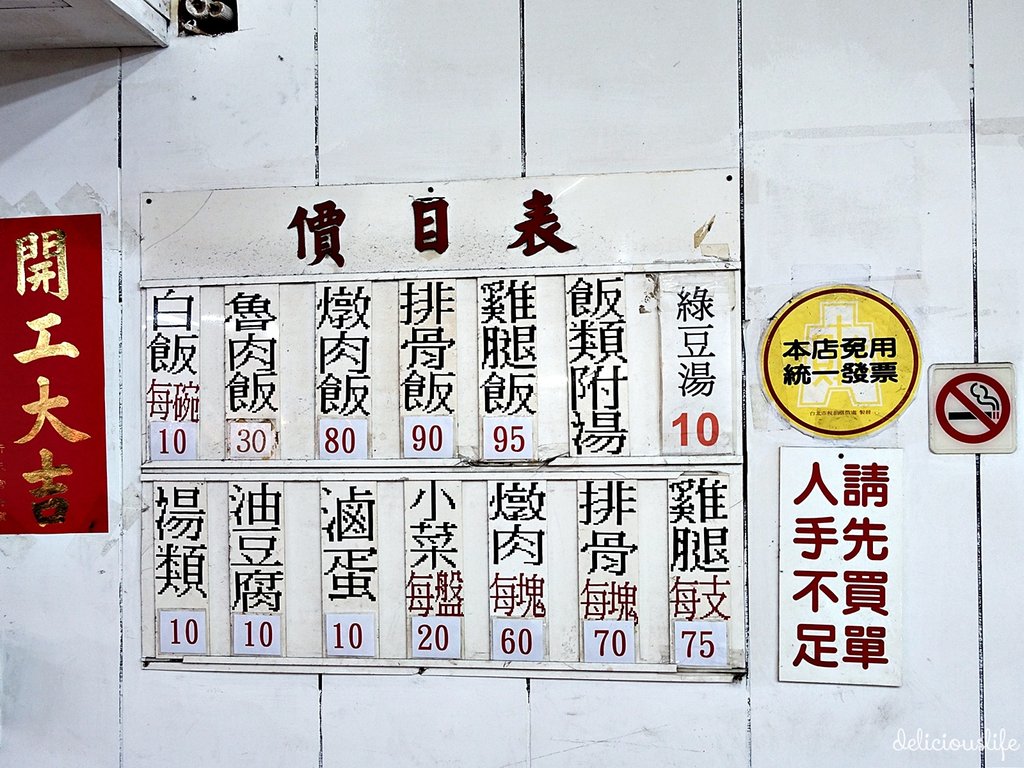 價目表
白飯每碗10
魯肉飯30
燉肉飯80
排骨飯90
雞腿飯95
飯類附湯
綠豆湯10
湯類10
油豆腐10
滷蛋10
小菜每盤20
燉肉每塊60
排骨每塊70
雞腿每支75
開工大吉
本店免用
統一發票
請先買單
人手不足
deliciouslife